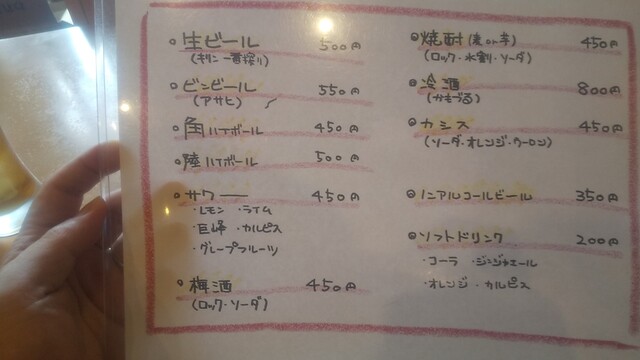 生ビール 500円
(キリン 一番搾り)
ビンビール 550円
(アサヒ)
角ハイボール 450円
陸ハイボール 500円
サワー 450円
・レモン ・ライム
・巨峰 ・カルピス
・グレープフルーツ
梅酒 450円
(ロック・ソーダ)
焼酎(麦or芋) 450円
(ロック・水割・ソーダ)
冷酒 800円
(かもづる)
カシス 450円
(ソーダ・オレンジ・ウーロン)
ノンアルコールビール 350円
ソフトドリンク 200円
・コーラ ・ジンジャエール
・オレンジ ・カルピス